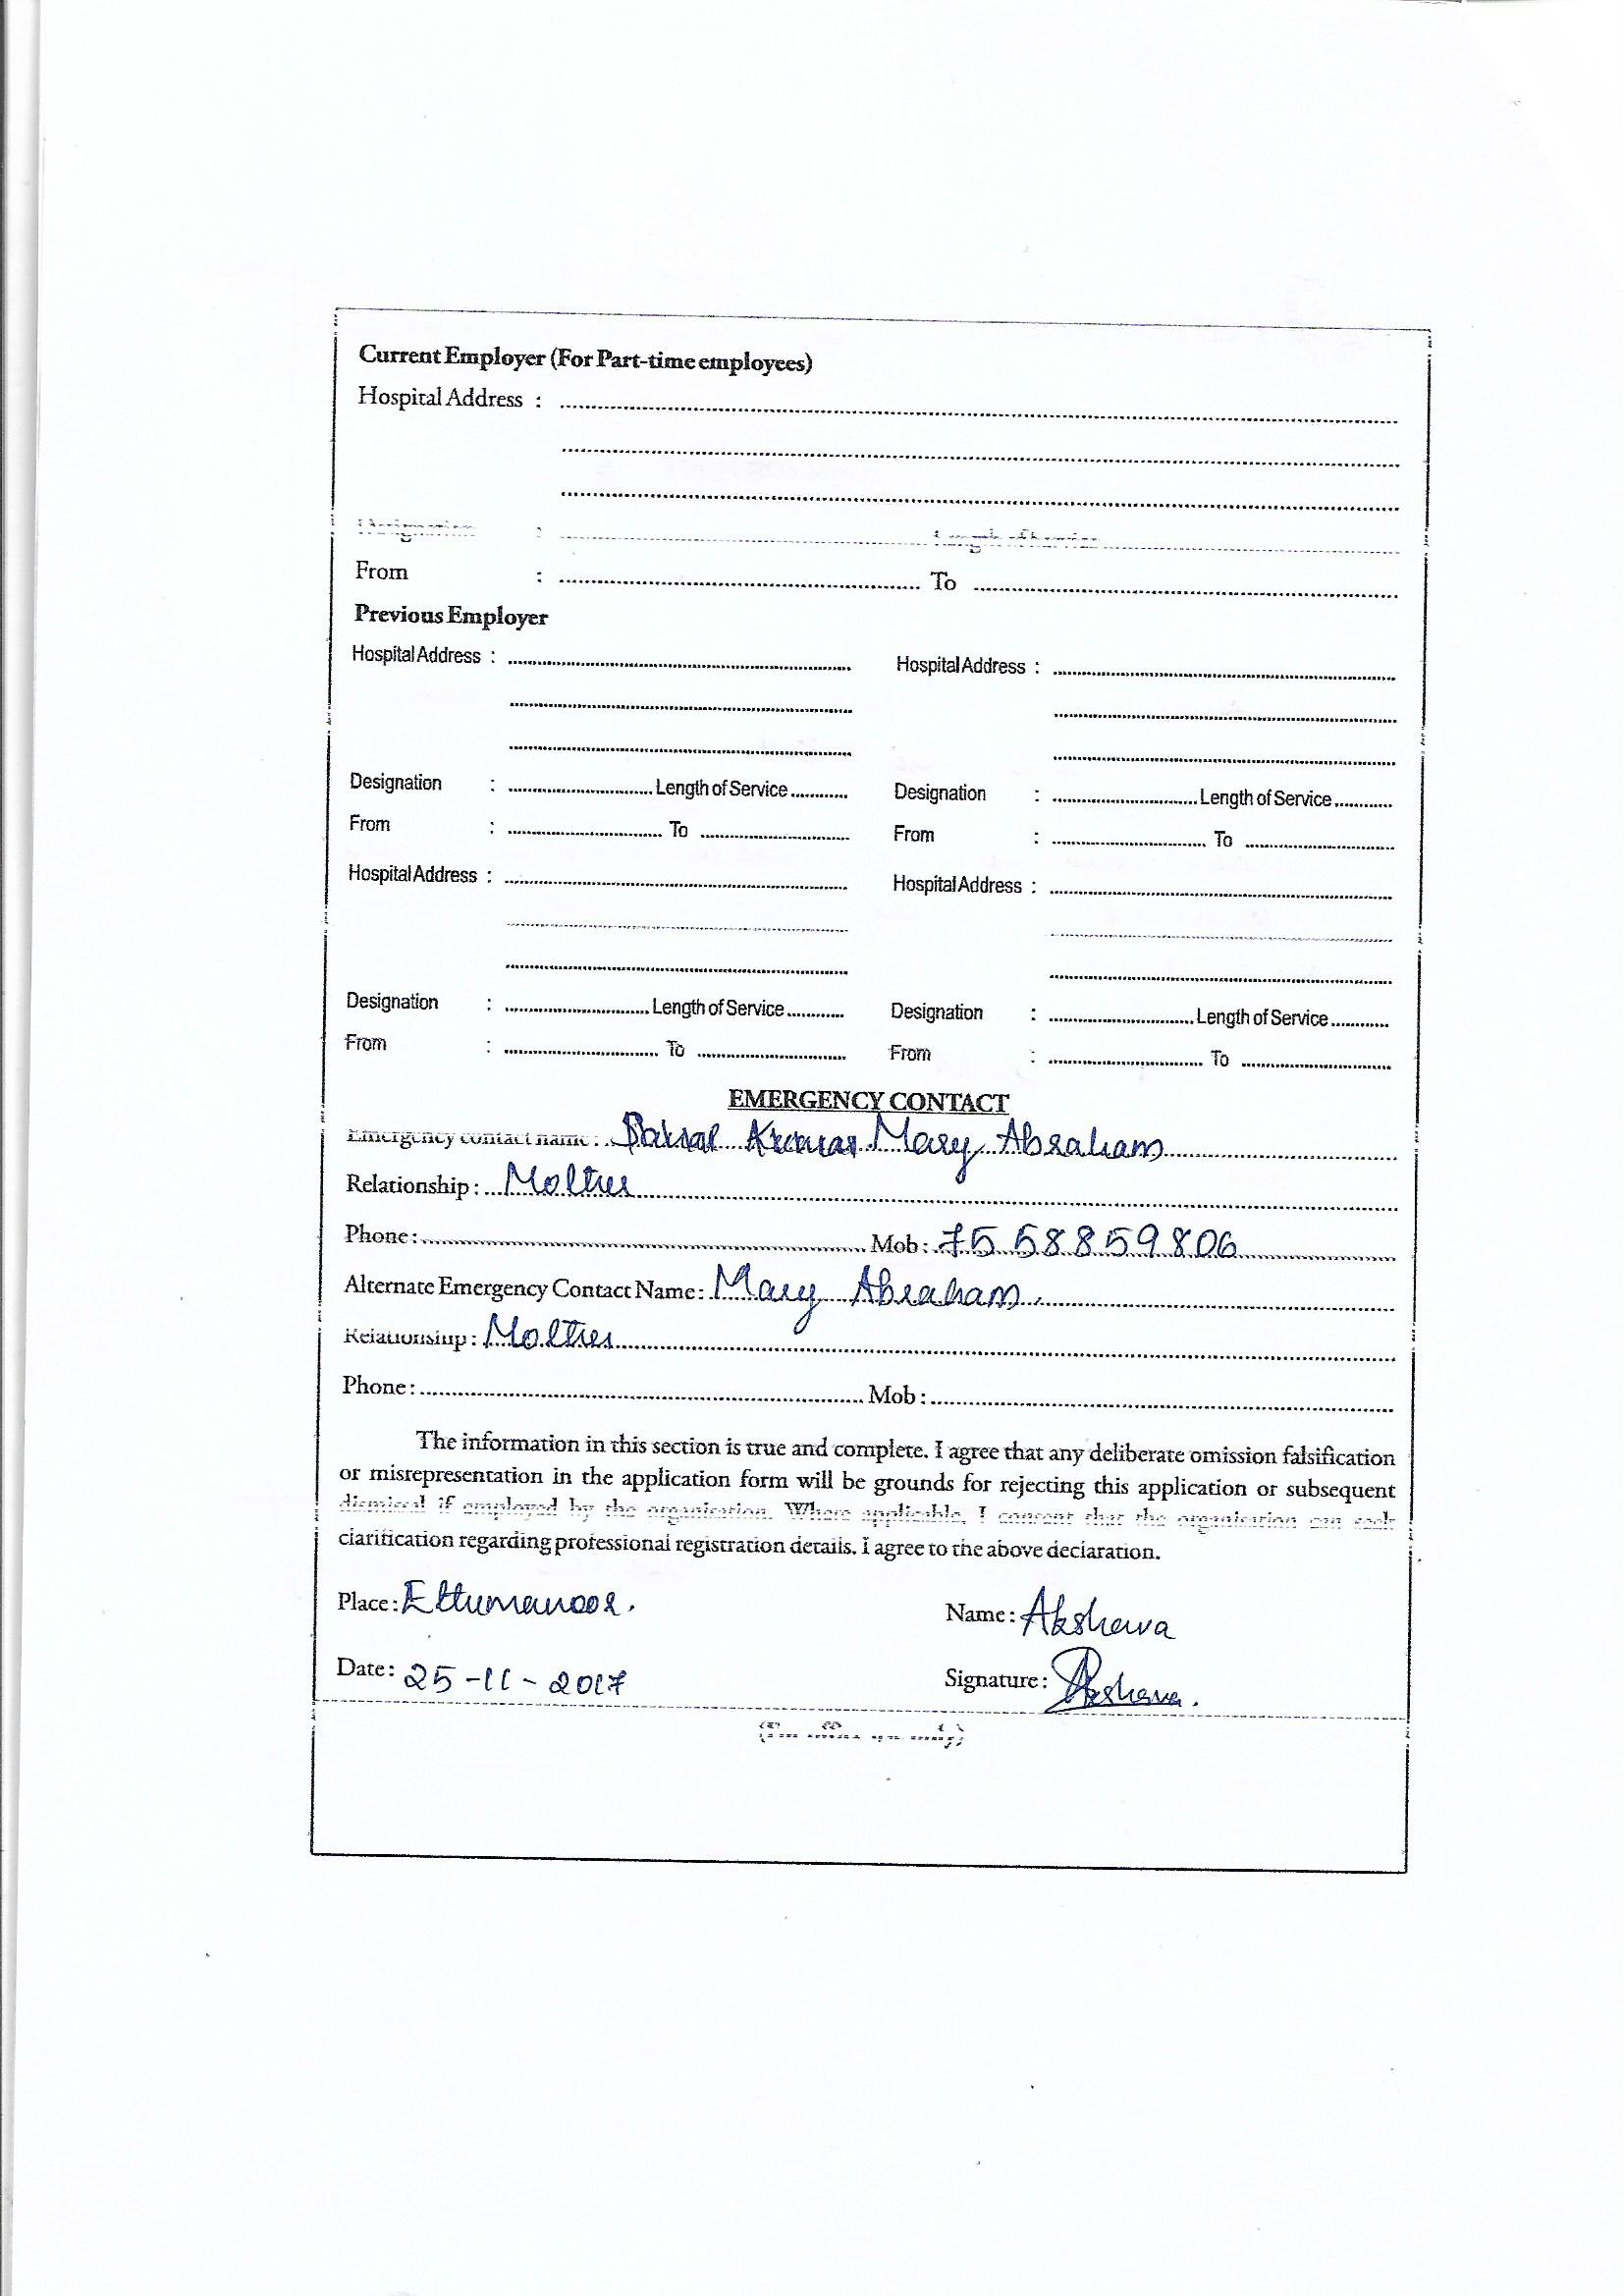 Current Employer (For Part-time employees)
Hospital Address : ........................................
........................................
........................................
Designation : ........................................ Length of Service
From : ........................................ To ........................................
Previous Employer
Hospital Address : .................... Hospital Address : ....................
.................... ....................
.................... ....................
Designation : .................... Length of Service ............ Designation : .................... Length of Service ............
From : .................... To .................... From : .................... To ....................
Hospital Address : .................... Hospital Address : ....................
.................... ....................
.................... ....................
Designation : .................... Length of Service ............ Designation : .................... Length of Service ............
From : .................... To .................... From : .................... To ....................
EMERGENCY CONTACT
Emergency contact name : Kumar Mary Abraham
Relationship : Mother
Phone : .................... Mob : 7558859806
Alternate Emergency Contact Name : Mary Abraham.
Relationship : Mother
Phone : .................... Mob : ....................
The information in this section is true and complete. I agree that any deliberate omission falsification
or misrepresentation in the application form will be grounds for rejecting this application or subsequent
dismissal if employed by the organisation. Where applicable, I consent that the organisation can seek
clarification regarding professional registration details. I agree to the above declaration.
Place : Ettumanoor. Name : Akshara
Date : 25-11-2017 Signature : Akshara.
(For office use only)